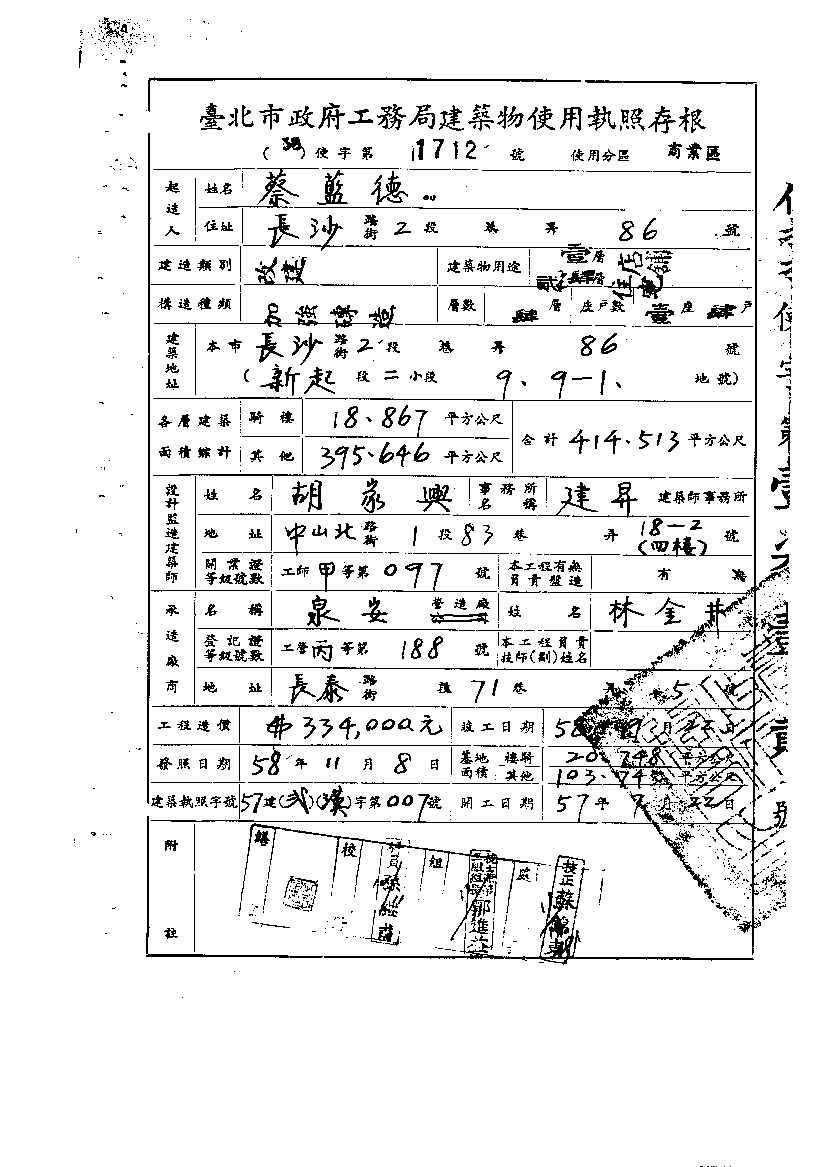 臺北市政府工務局建築物使用執照存根
(58)使字第 1712 號 使用分區 商業區
起造人 姓名 蔡藍德
住址 長沙 路街 2 段 巷 弄 86 號
建造類別 改建 建築物用途 壹層店舖 貳至肆層住宅
構造種類 加強磚造 層數 肆 層 座戶數 壹 座 肆 戶
建築地址 本市 長沙 路街 2 段 巷 弄 86 號
(新起 段 二 小段 9、9-1、 地號)
各層建築面積總計 騎樓 18.867 平方公尺 合計 414.513 平方公尺
其他 395.646 平方公尺
設計監造建築師 姓名 胡家興 事務所名稱 建昇 建築師事務所
地址 中山北 路街 1 段 83 巷 弄 18-2 (四樓) 號
開業證等級號數 工師 甲 等第 097 號 本工程有無負責監造 有 無
承造廠商 名稱 泉安 營造廠 姓名 林金井
登記證等級號數 工營 丙 等第 188 號 本工程負責技師(副)姓名
地址 長泰 路街 71 巷 5 號
工程造價 334,000元 竣工日期 58 月 22 日
發照日期 58 年 11 月 8 日 基地面積 樓騎 20.748 平方公尺
其他 103.745 平方公尺
建築執照字號 57 建(貳)(漢)字第 007 號 開工日期 57 年 7 月 22 日
附註
繕 校 組
校正 蘇錦